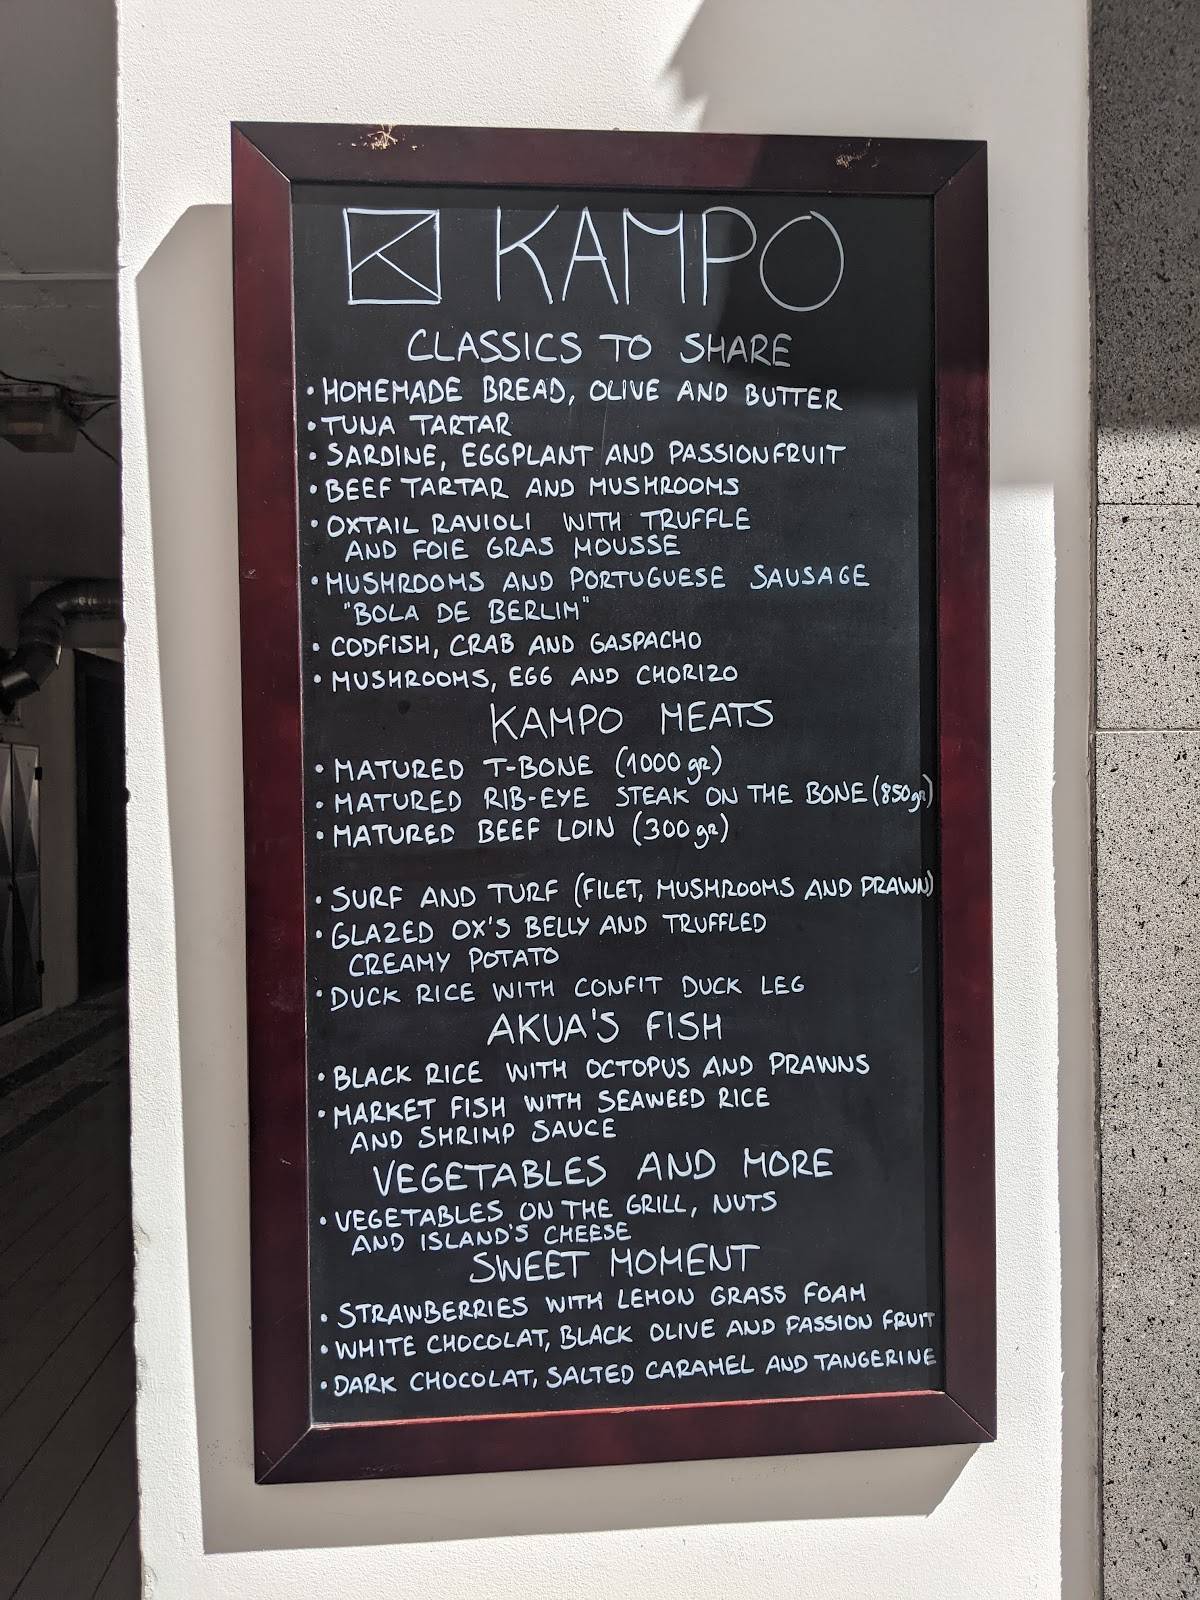 K KAMPO
CLASSICS TO SHARE
• HOMEMADE BREAD, OLIVE AND BUTTER
• TUNA TARTAR
• SARDINE, EGGPLANT AND PASSIONFRUIT
• BEEF TARTAR AND MUSHROOMS
• OXTAIL RAVIOLI WITH TRUFFLE
AND FOIE GRAS MOUSSE
• MUSHROOMS AND PORTUGUESE SAUSAGE
"BOLA DE BERLIM"
• CODFISH, CRAB AND GASPACHO
• MUSHROOMS, EGG AND CHORIZO
KAMPO MEATS
• MATURED T-BONE (1000 gr)
• MATURED RIB-EYE STEAK ON THE BONE (850gr)
• MATURED BEEF LOIN (300 gr)
• SURF AND TURF (FILET, MUSHROOMS AND PRAWN)
• GLAZED OX'S BELLY AND TRUFFLED
CREAMY POTATO
• DUCK RICE WITH CONFIT DUCK LEG
AKUA'S FISH
• BLACK RICE WITH OCTOPUS AND PRAWNS
• MARKET FISH WITH SEAWEED RICE
AND SHRIMP SAUCE
VEGETABLES AND MORE
• VEGETABLES ON THE GRILL, NUTS
AND ISLAND'S CHEESE
SWEET MOMENT
• STRAWBERRIES WITH LEMON GRASS FOAM
• WHITE CHOCOLAT, BLACK OLIVE AND PASSION FRUIT
• DARK CHOCOLAT, SALTED CARAMEL AND TANGERINE